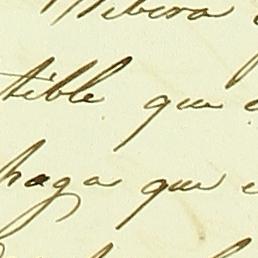 Ribera
tible que
haga que